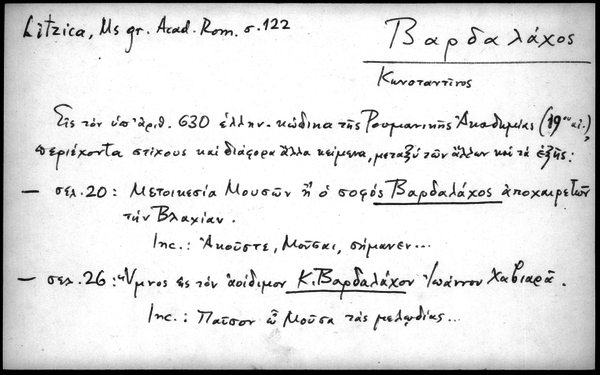 Litzica, Ms gr. Acad. Rom. σ. 122
Βαρδαλάχος
Κωνσταντῖνος
Εἰς τὸν ὑπ' ἀριθ. 630 ἑλλην. κώδικα τῆς Ρουμανικῆς Ἀκαδημίας (19ου αἰ.),
περιέχοντα στίχους καὶ διάφορα ἄλλα κείμενα, μεταξὺ τῶν ἄλλων καὶ τὰ ἑξῆς:
— σελ. 20: Μετοικεσία Μουσῶν ἢ ὁ σοφὸς Βαρδαλάχος ἀποχαιρετῶν
τὴν Βλαχίαν.
Inc.: Ἀκοῦστε, Μοῦσαι, σήμανεν...
— σελ. 26: Ὕμνος εἰς τὸν ἀοίδιμον Κ. Βαρδαλάχον Ἰωάννου Χαβιαρᾶ.
Inc.: Παῖσον ὦ Μοῦσα τὰς μελῳδίας...